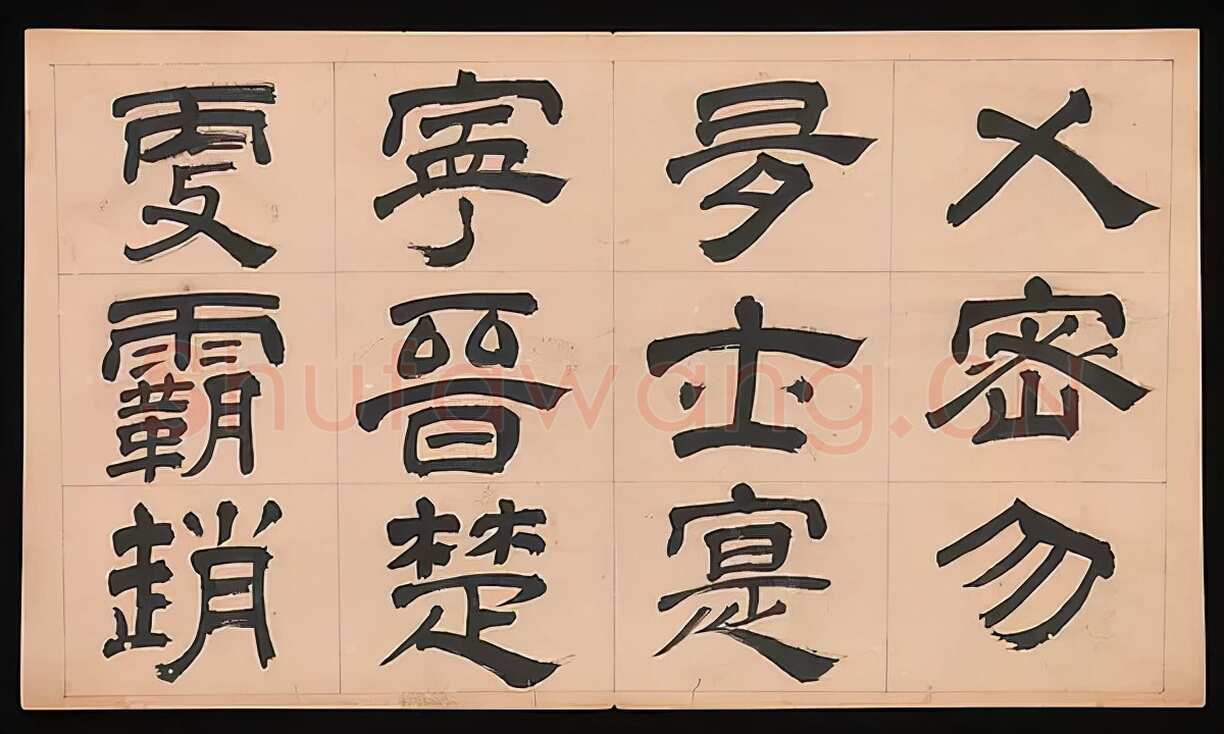 乂密勿
夛士寔
寧晉楚
更霸趙
Shufawang.CN